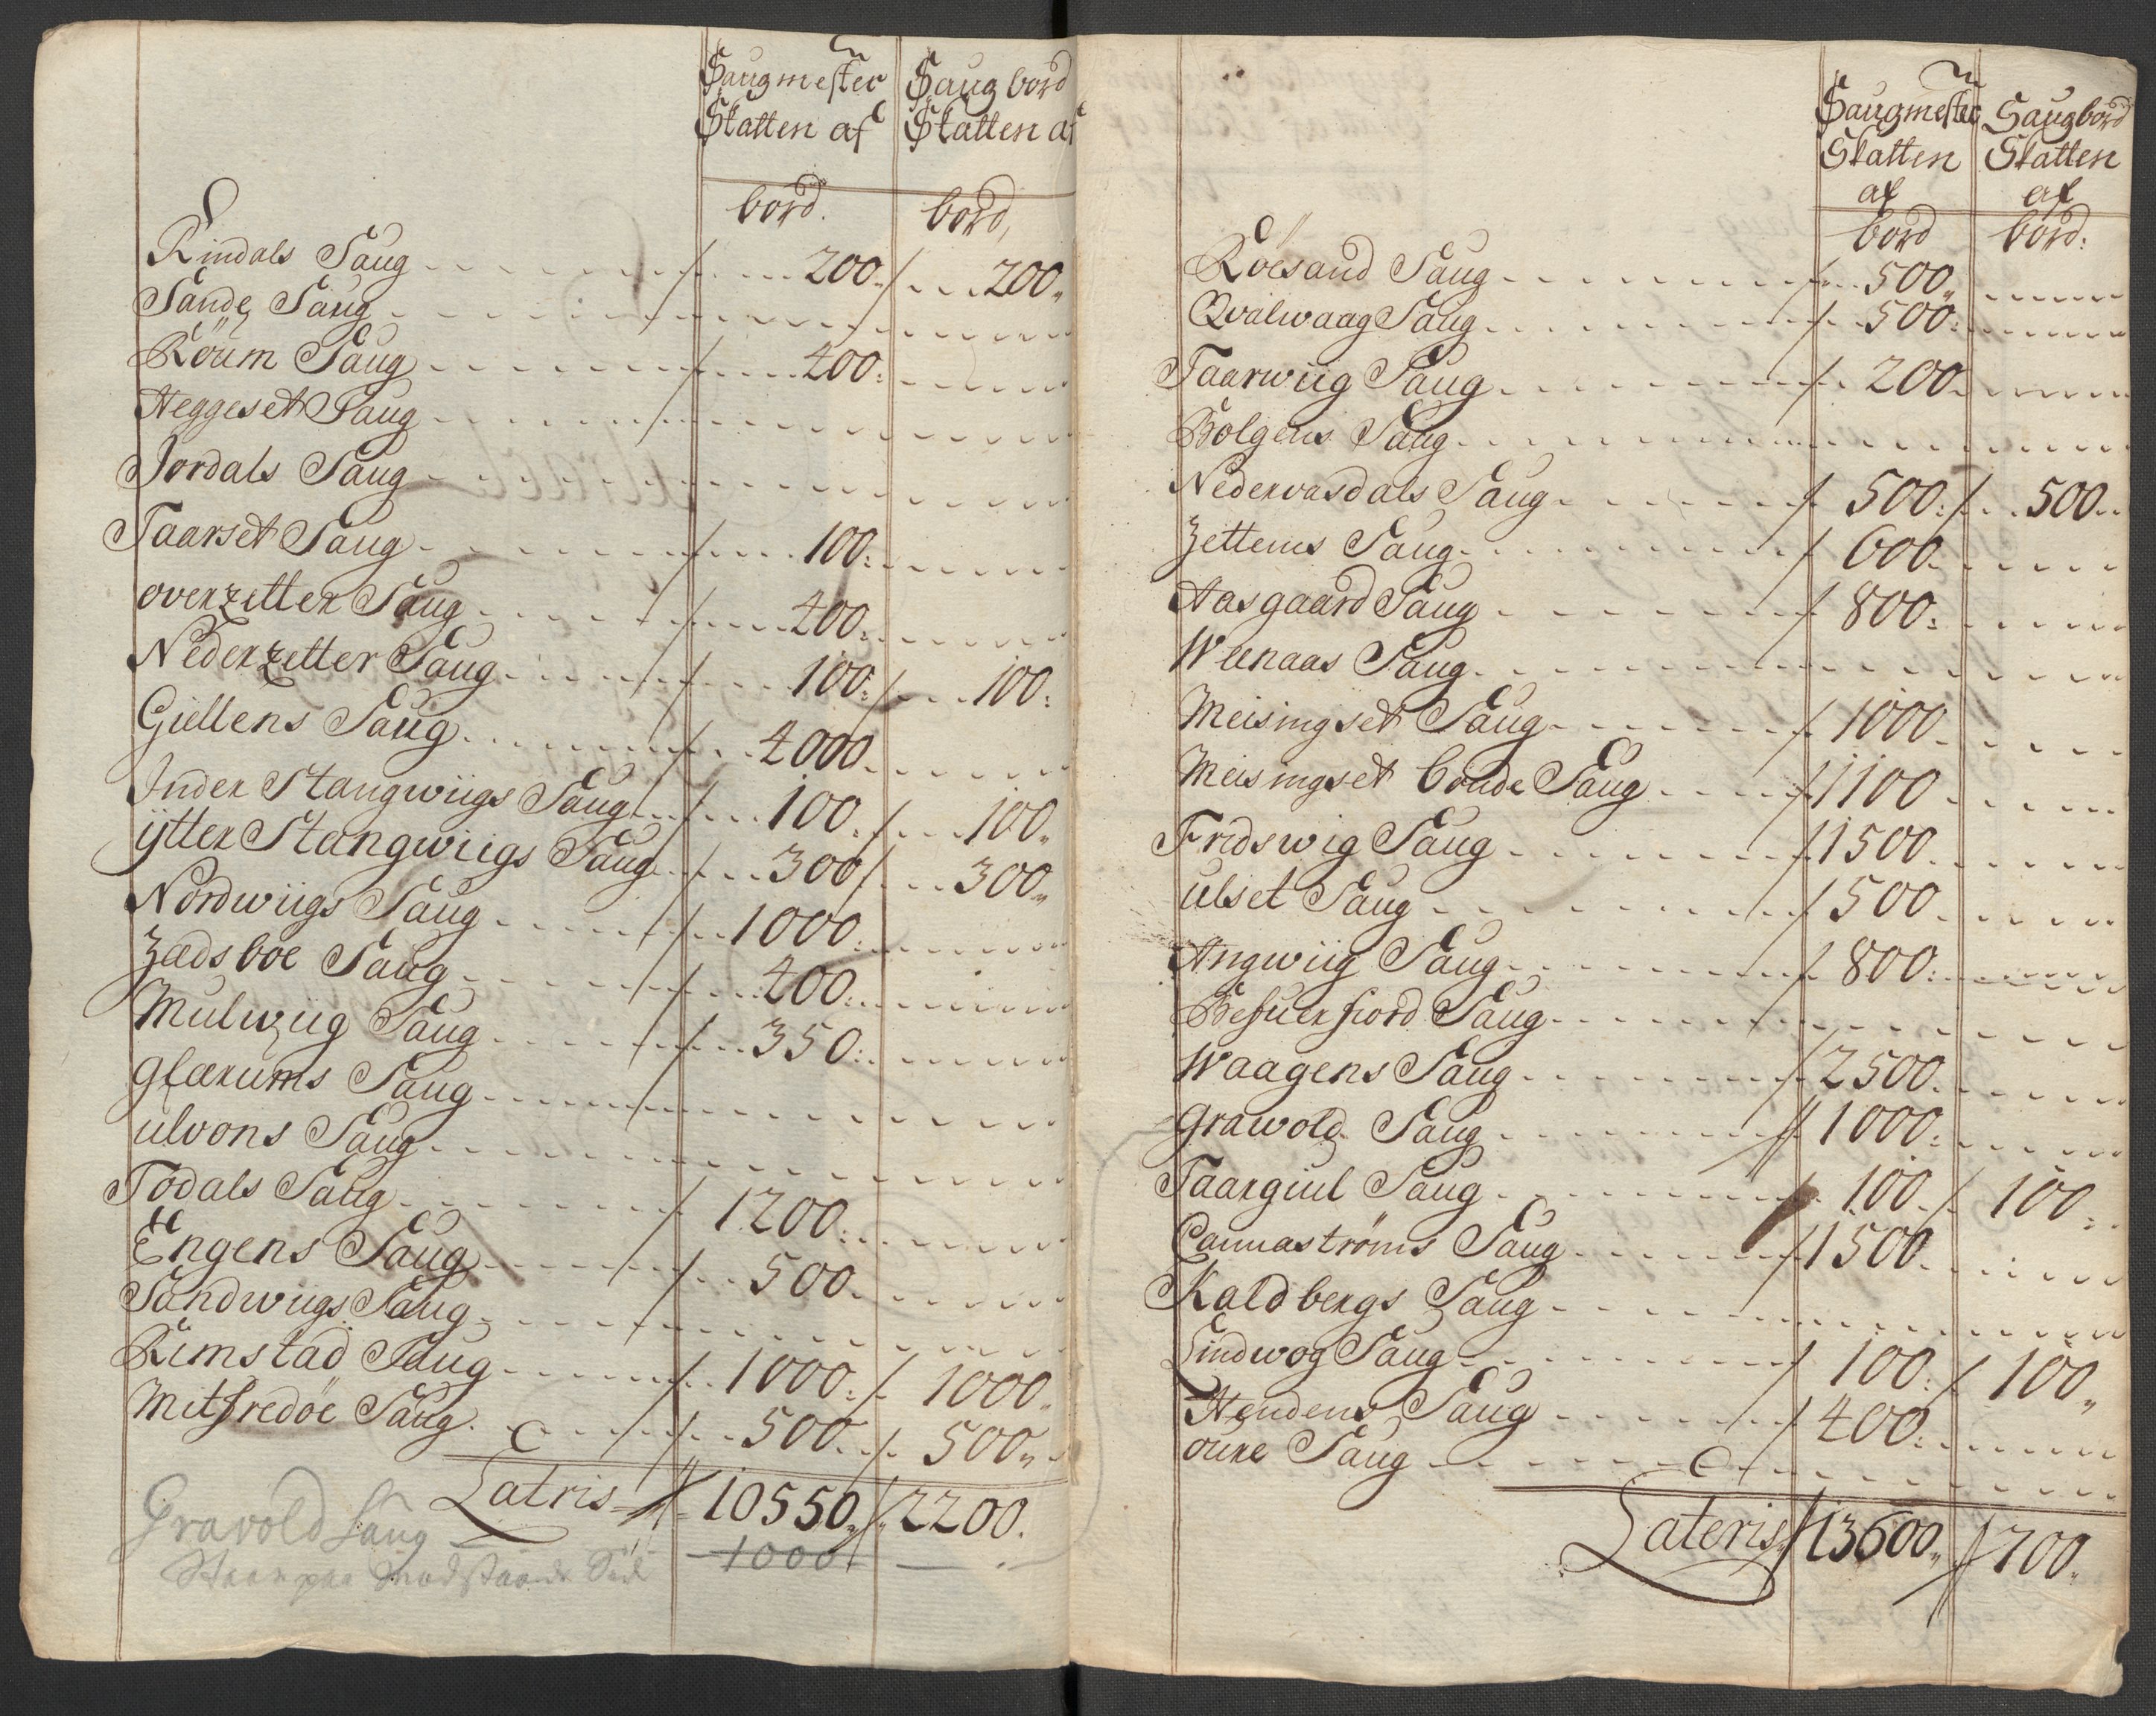 Saugmester Saugbord
Skatten af Skatten af
bord. bord,
Rindals Saug 200. 200.
Sande Saug
Röum Saug 400.
Heggeset Saug
Jordals Saug
Taarset Saug 100.
overzetter Saug 400.
Nederzetter Saug 100. 100.
Giellens Saug 4000.
Inder Stangwiigs Saug 100. 100.
ÿtter Stangwiigs Saug 300 300.
Nordwiigs Saug 1000.
Zædsboe Saug 400.
Mulwiig Saug 350.
Glærums Saug
ulvons Saug
Todals Saug 1200.
Engens Saug 500.
Sandwiigs Saug
Rimstad Saug 1000. 1000.
Mitfredöe Saug. 500. 500.
Latris 10550. 2200.
Gravold Saug 1000
Saugmester Saugbord
Skatten Skatten
af af
bord bord.
Röesand Saug 500.
Qvalwaag Saug 500.
Taarwiig Saug 200.
Bolgens Saug
Nedervasdals Saug 500. 500.
Zettems Saug 600.
Aasgaard Saug 800.
Weenaas Saug
Meisingset Saug 1000.
Meisingset bonde Saug 1100.
Fridswig Saug 1500.
ulset Saug 500.
Angwiig Saug 800.
Beswerfiord Saug
Waagens Saug 2500.
Grawold Saug 1000.
Taargiul Saug 100. 100.
Cannaströms Saug 1500.
Kaldbergs Saug
Lindwog Saug 100. 100.
Hendens Saug 400.
oure Saug
Lateris 13600. 700.